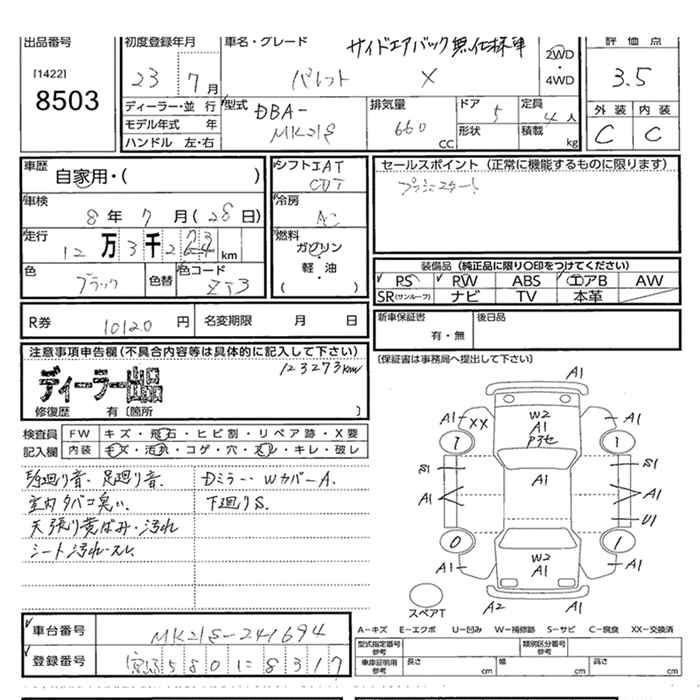 出品番号
[1422]
8503
初度登録年月
23 7月
ディーラー・並行
モデル年式 年
ハンドル 左・右
車名・グレード
サイドエアバック無仕様車
パレット X
2WD
・
4WD
型式
DBA-
MK21S
排気量
660
CC
ドア
5
形状
定員
4人
積載
kg
評価点
3.5
外装 内装
C C
車歴
自家用・( )
車検
8年 7月(28日)
走行
12万3千2 km
色
ブラック
色替
色コード
ZJ3
シフト
AT
冷房
AC
燃料
ガソリン
・
軽・油
( )
セールスポイント (正常に機能するものに限ります)
プッシュスタート
装備品 (純正品に限り○印をつけてください)
PS PW ABS エアB AW
SR(サンルーフ) ナビ TV 本革
R券 10120 円 名変期限 月 日
新車保証書
有・無
後日品
[保証書は事務局へ提出して下さい]
注意事項申告欄(不具合内容等は具体的に記入して下さい)
123273km
ディーラー出品
修復歴 有〔箇所 〕
検査員
記入欄
FW キズ・飛石・ヒビ割・リペア跡・X要
内装 キズ・汚れ・コゲ・穴・スレ・キレ・破レ
駆廻り音、足廻り音、
室内タバコ臭い、
天張り黄ばみ・汚れ
シート汚れ・スレ、
Dミラー・WカバーA、
下廻りS、
A1
A1 XX
W2
A1
Pヌセ
A1
1 1
S1
S1
A1
A1
U1
0 1
A1
W2
A1
A1
スペアT
A2 A1
A-キズ E-エクボ U-凹み W-補修跡 S-サビ C-腐食 XX-交換済
車台番号
MK21S-241694
登録番号
宮崎 580 に 8317
型式指定番号
参考
類別区分番号
参考
車庫証明用
参考
長さ cm
幅 cm
高さ cm